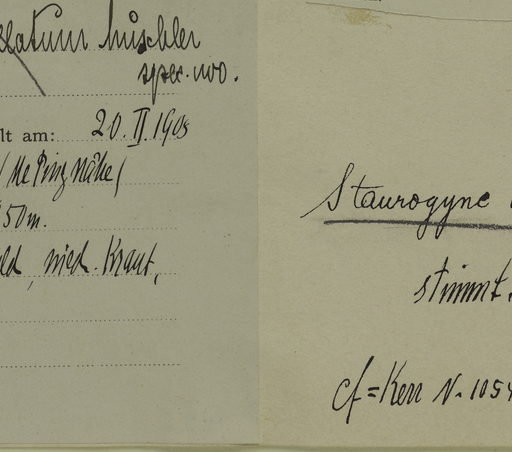 latum huschler
spec. nov.
lt am: 20. II. 1905
(Me Ping nähe)
50m.
ld, nied. Kraut,
Staurogyne
stimmt.
cf = Kerr N. 1054